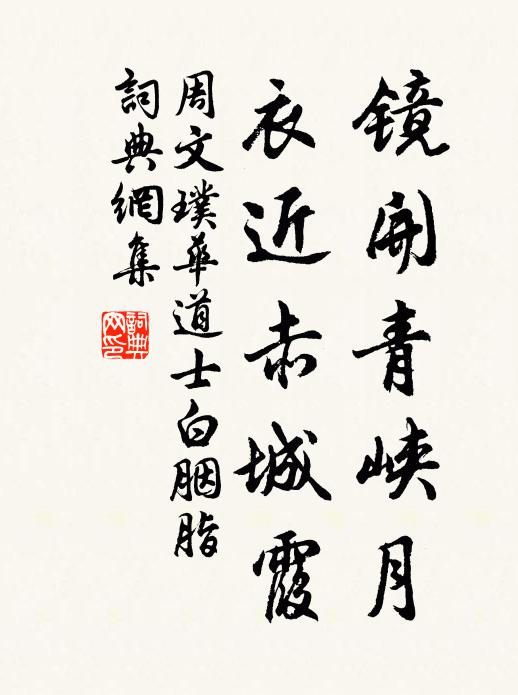 镜開青峡月
衣近赤城霞
周文璞華道士白胭脂
詞典網集
詞典网印